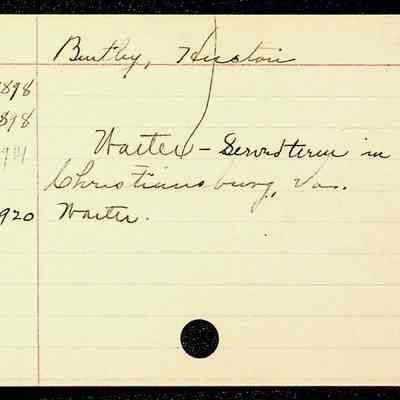 Bentley, Huston
1898
898
941 Waiter - Served term in
Christiansburg, Va.
1920 Waiter.